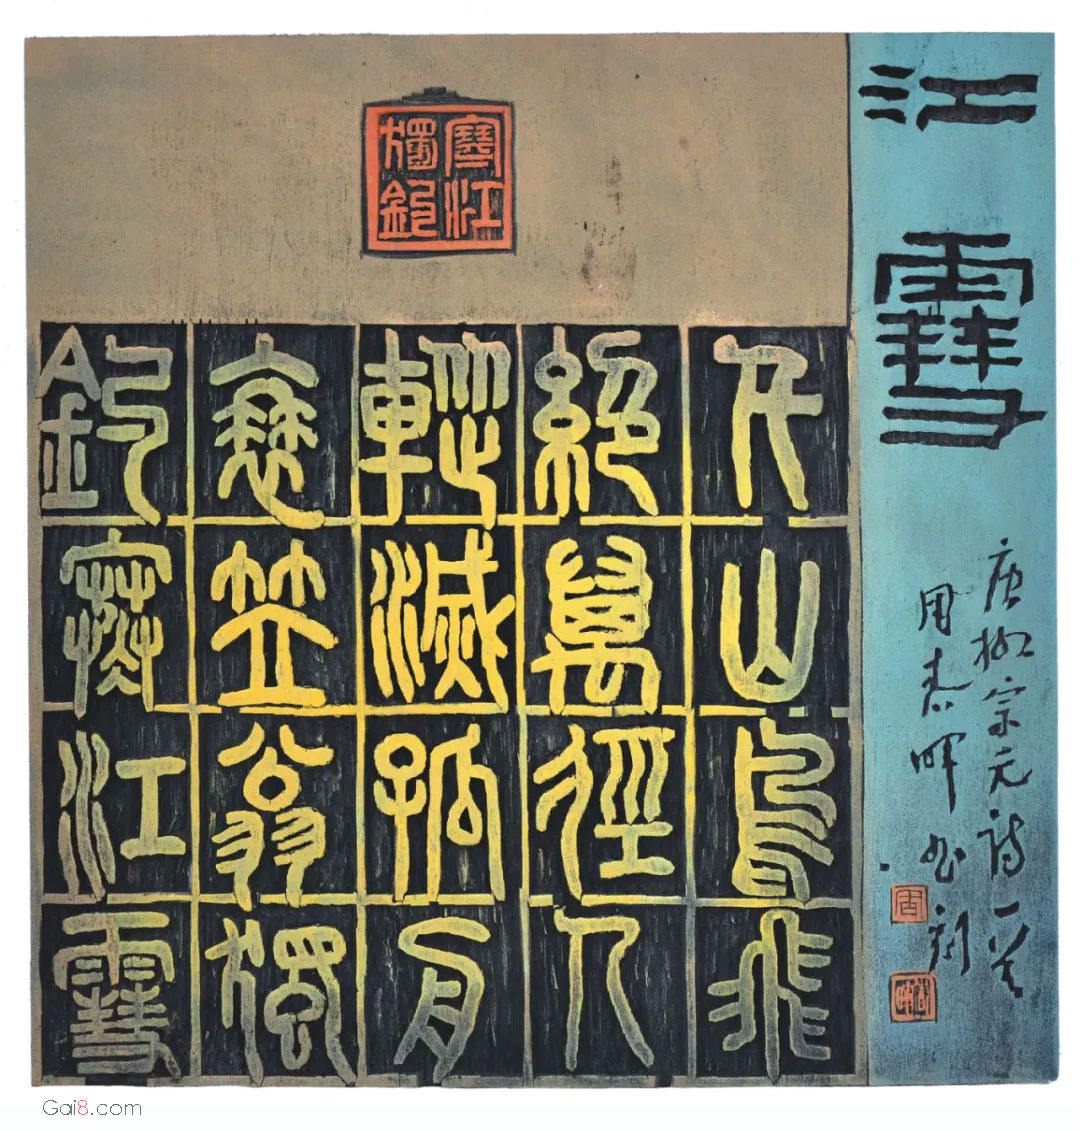 江雪
唐柳宗元诗一首
周泰晖书刻
周
寒江
獨釣
千山鳥飛
絕萬徑人
蹤滅孤舟
蓑笠翁獨
釣寒江雪
Gai8.com